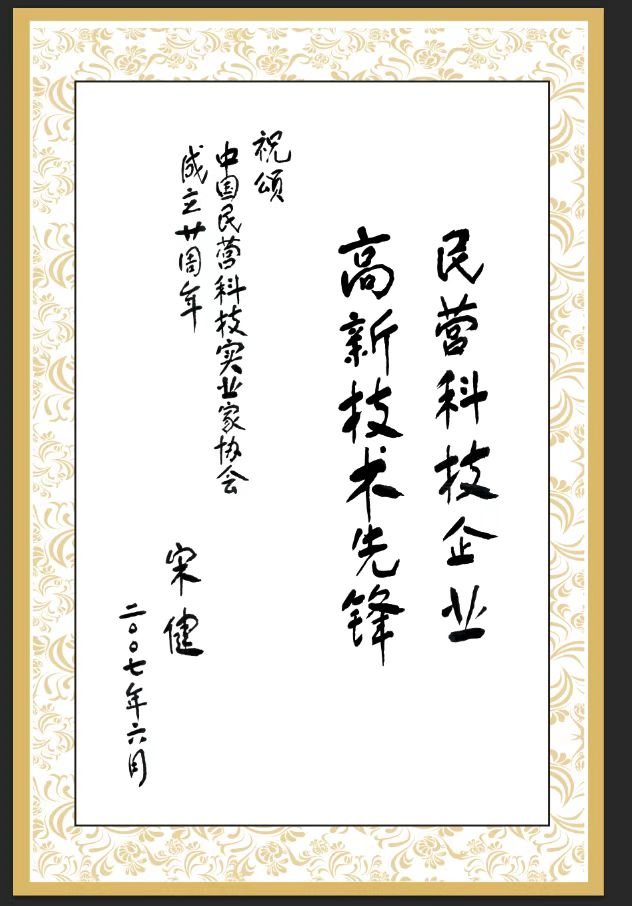 民营科技企业
高新技术先锋
祝颂
中国民营科技实业家协会
成立廿周年
宋健
二〇〇七年六月